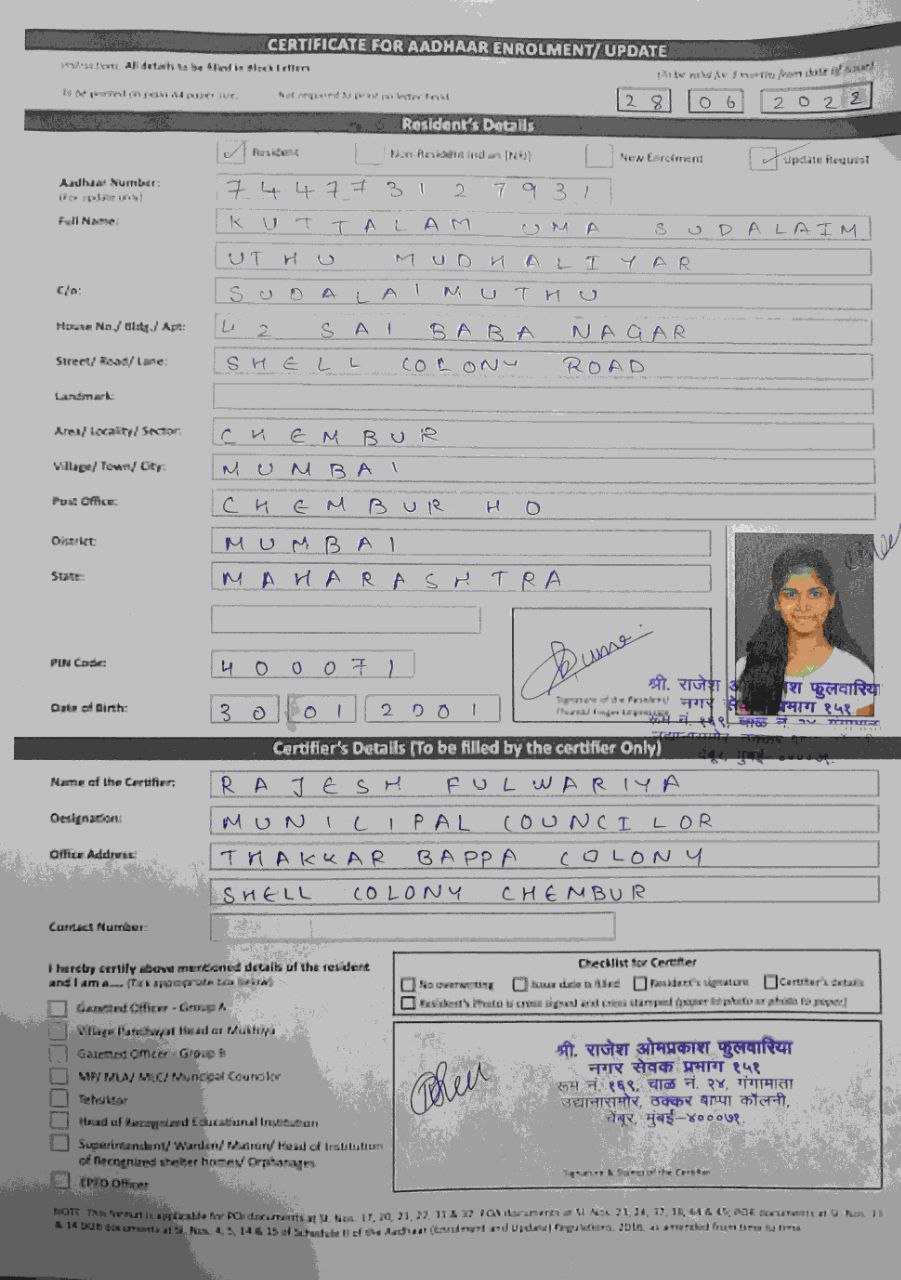 CERTIFICATE FOR AADHAAR ENROLMENT/ UPDATE
Instructions: All details to be filled in Block Letters
(To be valid for 3 months from date of issue)
To be printed on plain A4 paper size. Not required to print on letter head
28 06 2022
Resident's Details
Resident Non-Resident Indian (NRI) New Enrolment Update Request
Aadhaar Number: 744773127931
(For update only)
Full Name: KUTTALAM UMA SUDALAIM
UTHU MUDHALIYAR
C/o: SUDALAIMUTHU
House No./ Bldg./ Apt: 42 SAI BABA NAGAR
Street/ Road/ Lane: SHELL COLONY ROAD
Landmark:
Area/ Locality/ Sector: CHEMBUR
Village/ Town/ City: MUMBAI
Post Office: CHEMBUR HO
District: MUMBAI
State: MAHARASHTRA
PIN Code: 400071
Signature of the Resident/
Date of Birth: 30 01 2001
श्री. राजेश ओ प्रकाश फुलवारिया
नगर सेवक प्रभाग १५१
रूम नं. १६९, चाळ नं. २४ गंगामाता
चेंबूर, मुंबई-४०००७१.
Certifier's Details (To be filled by the certifier Only)
Name of the Certifier: RAJESH FULWARIYA
Designation: MUNICIPAL COUNCILOR
Office Address: THAKKAR BAPPA COLONY
SHELL COLONY CHEMBUR
Contact Number:
I hereby certify above mentioned details of the resident
and I am a.... (Tick appropriate box below)
Gazetted Officer - Group A
Village Panchayat Head or Mukhiya
Gazetted Officer - Group B
MP/ MLA/ MLC/ Municipal Councilor
Tehsildar
Head of Recognized Educational Institution
Superintendent/ Warden/ Matron/ Head of Institution
of Recognized shelter homes/ Orphanages
EPFO Officer
Checklist for Certifier
No overwriting Issue date is filled Resident's signature Certifier's details
Resident's Photo is cross signed and cross stamped (paper to photo or photo to paper)
श्री. राजेश ओमप्रकाश फुलवारिया
नगर सेवक प्रभाग १५१
रूम नं. १६९, चाळ नं. २४, गंगामाता
उद्यानासमोर, ठक्कर बाप्पा कॉलनी,
चेंबूर, मुंबई-४०००७१
Signature & Stamp of the Certifier
NOTE: This format is applicable for POI documents at Sl. Nos. 17, 20, 21, 22, 31 & 32; POA documents at Sl. Nos. 21, 24, 37, 38, 44 & 45; POR documents at Sl. Nos. 11
& 14 DOB documents at Sl. Nos. 4, 5, 14 & 15 of Schedule II of the Aadhaar (Enrolment and Update) Regulations, 2016, as amended from time to time